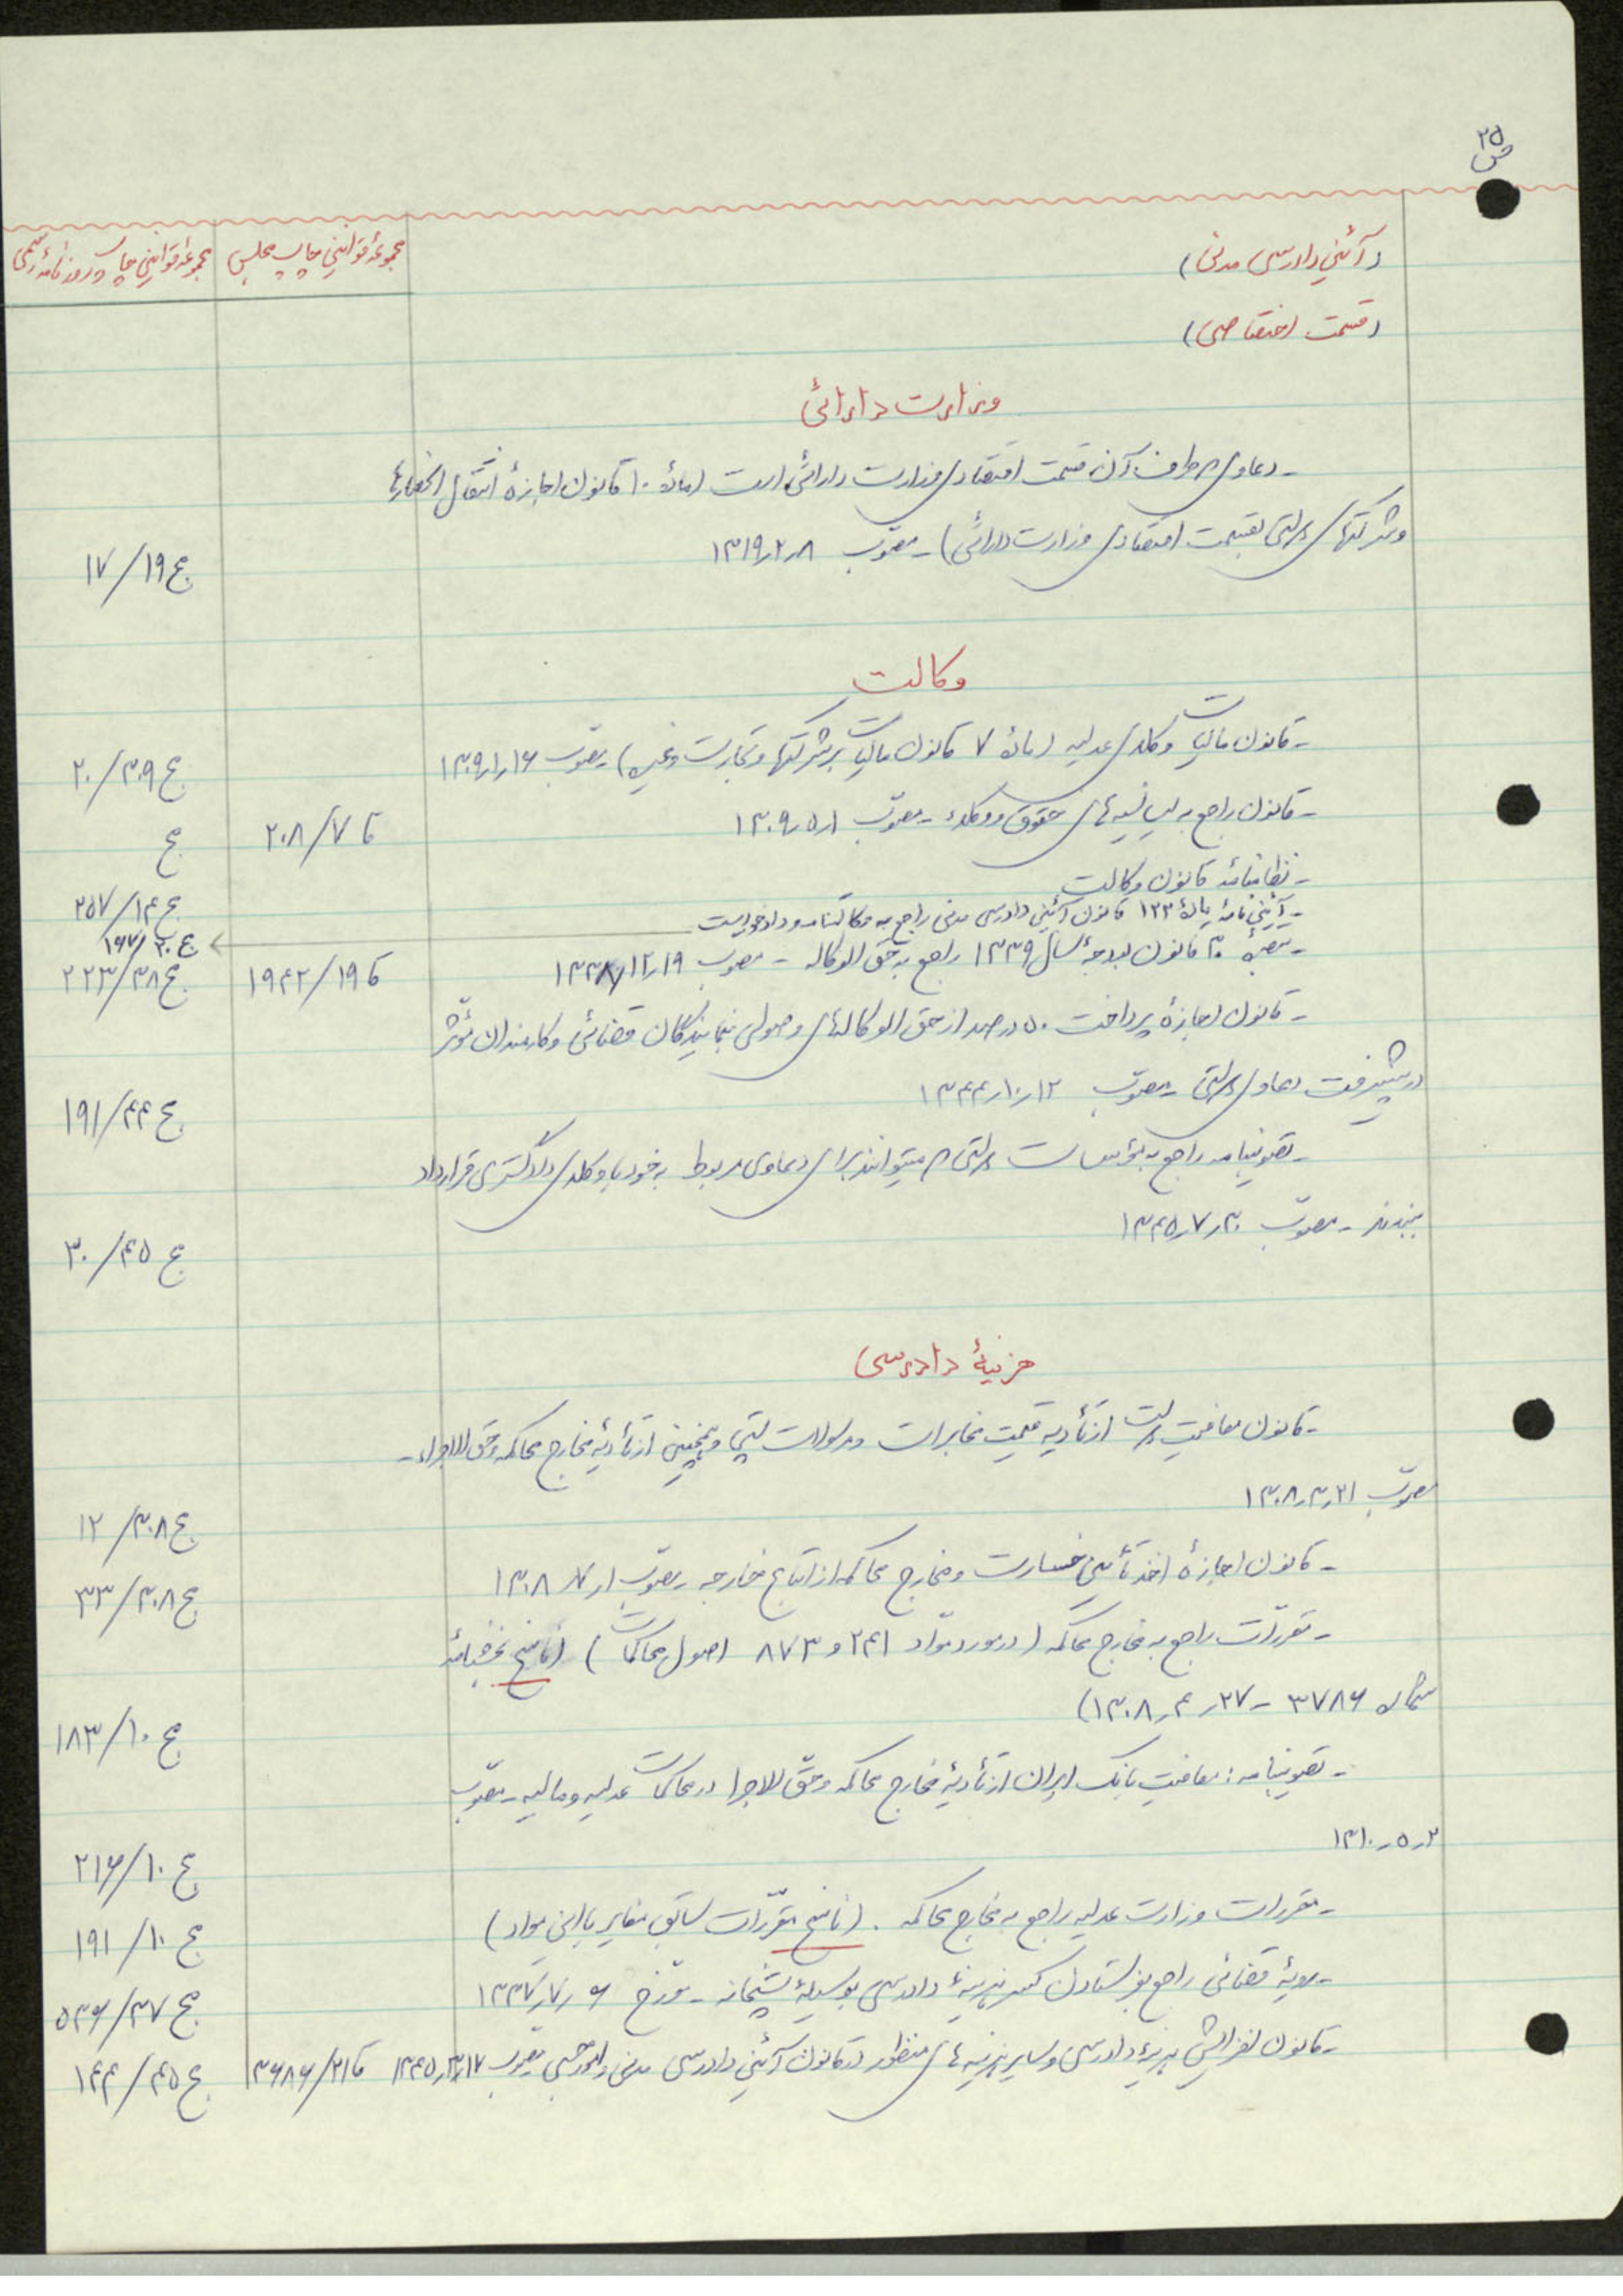 ص ۲۵
(آئین دادرسی مدنی)
مجموعهٔ قوانین چاپ مجلس
مجموعهٔ قوانین چاپ روزنامهٔ رسمی
(قسمت اختصاصی)
وزارت دارائی
- دعاوی که طرف آن قسمت اقتصادی وزارت دارائی است (مادهٔ ۱۰ قانون اجازهٔ انتقال انحصارها
وشرکتهای دولتی بقسمت اقتصادی وزارت دارائی) - مصوّب ۱۳۱۹٫۲٫۸
ج ۱۷/۱۹
وکالت
- قانون مالیات وکلای عدلیه (مادهٔ ۷ قانون مالیات برشرکتها وتجارت وغیره) مصوّب ۱۳۰۹٫۱٫۱۶
ج ۲۰/۳۰۹
- قانون راجع به لیسانسیه‌های حقوق ووکلاء - مصوّب ۱۳۰۹٫۵٫۱
ک ۲۰۸/۷
ج
- نظامنامهٔ قانون وکالت
ج ۲۵۷/۱۴
- آئین نامهٔ مادهٔ ۱۲۳ قانون آئین دادرسی مدنی راجع به وکالتنامه و دادخواست
ج ۱۶۷/۲۰
- تبصرهٔ ۳۰ قانون بودجهٔ سال ۱۳۳۹ راجع به حق الوکاله - مصوب ۱۳۳۸٫۱۲٫۱۹
ک ۱۹۴۲/۱۹
ج ۲۲۳/۳۸
- قانون اجازهٔ پرداخت ۵۰ درصد از حق الوکاله‌های وصولی بنمایندگان قضائی وکارمندان مؤثر
درپیشرفت دعاوی دولتی - مصوّب ۱۳۴۴٫۱۰٫۱۲
ج ۱۹۱/۴۴
- تصویبنامه راجع به مؤسسات دولتی که میتوانند برای دعاوی مربوط به خود با وکلای دادگستری قرارداد
ببندند - مصوّب ۱۳۴۵٫۷٫۳۰
ج ۳۰/۴۵
هزینهٔ دادرسی
- قانون معافیت دولت ازتأدیه قیمت مخابرات ومرسولات پستی وهمچنین ازتأدیهٔ مخارج محاکمه وحق الاجراء -
مصوّب ۱۳۰۸٫۳٫۲۱
ج ۱۲/۳۰۸
- قانون اجازهٔ اخذ تأمین خسارت ومخارج محاکمه از اتباع خارجه - مصوّب ۱۳۰۸٫۷٫۱
ج ۳۳/۳۰۸
- مقررّات راجع به مخارج محاکمه (درمورد موّاد ۲۴۱ و ۸۷۳ اصول محاکمات) (ناسخ بخشنامهٔ
شمارهٔ ۳۷۸۶ - ۲۷٫۴٫۱۳۰۸)
ج ۱۸۳/۱۰
- تصویبنامه: معافیت بانک ایران ازتأدیهٔ مخارج محاکمه وحقّ الاجرا درمحاکمات عدلیه ومالیه - مصوّب
۱۳۱۰٫۵٫۲
ج ۲۱۶/۱۰
- مقررات وزارت عدلیه راجع به مخارج محاکمه. (ناسخ مقررّات سابق مغایر بااین مواد)
ج ۱۹۱/۱۰
- رویهٔ قضائی راجع بفرستادن کسر هزینهٔ دادرسی بوسیلهٔ پستخانه - مورّخ ۱۳۳۷٫۷٫۶
ج ۵۳۶/۳۷
- قانون افزایش هزینهٔ دادرسی وسایر هزینه‌های منظور درقانون آئین دادرسی مدنی وامورحسبی مصوّب ۱۳۴۵٫۳٫۱۷
ک ۳۶۸۶/۲۱
ج ۱۴۴/۴۵